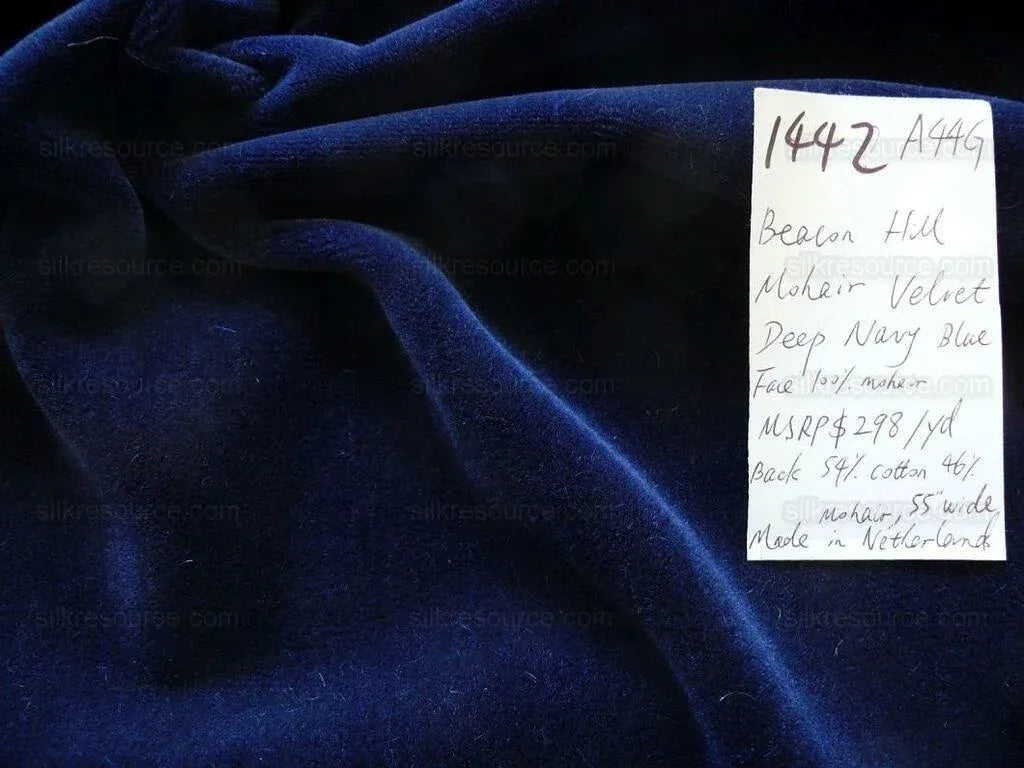 1442 A44G
Beacon Hill
Mohair Velvet
Deep Navy Blue
Face 100% mohair
MSRP $298/yd
Back 54% cotton 46%
mohair, 55" wide,
Made in Netherlands
silkresource.com